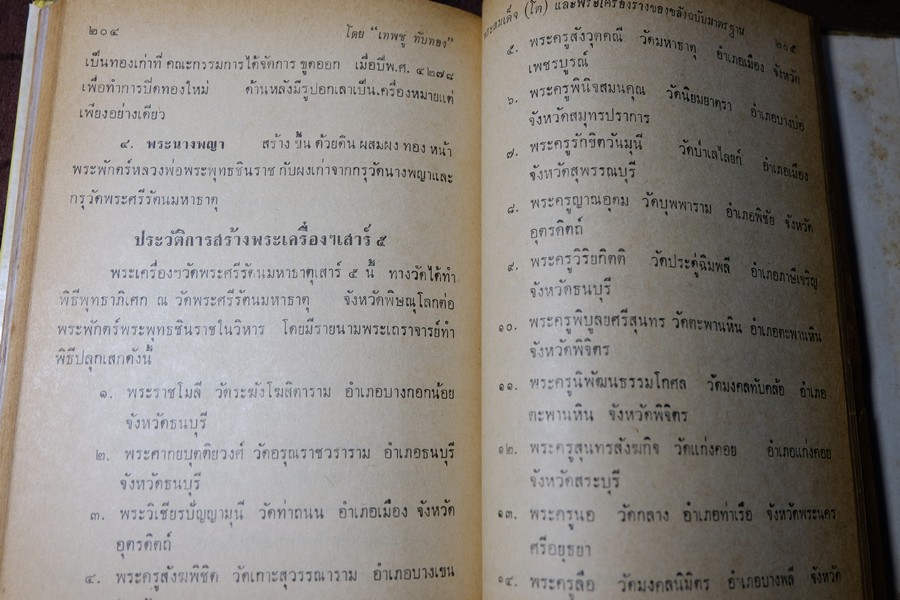 ๒๐๔ โดย "เทพชู ทับทอง"
เป็นทองเก่าที่ คณะกรรมการได้จัดการ ขูดออก เมื่อปีพ.ศ. ๔๒๗๘
เพื่อทำการปิดทองใหม่ ด้านหลังมีรูปอกเลาเป็น.ครื่องหมายแต่
เพียงอย่างเดียว
๔. พระนางพญา สร้าง ขึ้น ด้วยดิน ผสมผง ทอง หน้า
พระพักตร์หลวงพ่อพระพุทธชินราช กับผงเก่าจากกรุวัดนางพญาและ
กรุวัดพระศรีรัตนมหาธาตุ
ประวัติการสร้างพระเครื่องฯเสาร์ ๕
พระเครื่องฯวัดพระศรีรัตนมหาธาตุเสาร์ ๕ นี้ ทางวัดได้ทำ
พิธีพุทธาภิเศก ณ วัดพระศรีรัตนมหาธาตุ จังหวัดพิษณุโลกต่อ
พระพักตร์พระพุทธชินราชในวิหาร โดยมีรายนามพระเถราจารย์ทำ
พิธีปลุกเสกดังนี้
๑. พระราชโมลี วัดระฆังโฆสิตาราม อำเภอบางกอกน้อย
จังหวัดธนบุรี
๒. พระศากยบุตติยวงศ์ วัดอรุณราชวราราม อำเภอธนบุรี
จังหวัดธนบุรี
๓. พระวิเชียรปัญญามุนี วัดท่าถนน อำเภอเมือง จังหวัด
อุตรดิตถ์
๔. พระครูสังฆพิชิต วัดเกาะสุวรรณาราม อำเภอบางเขน
พระสมเด็จ (โต) และพระเครื่องรางของขลังฉบับมาตรฐาน ๒๐๕
๕. พระครูสังวุตคณี วัดมหาธาตุ อำเภอเมือง จังหวัด
เพชรบูรณ์
๖. พระครูพินิจสมนคุณ วัดนิยมยาตรา อำเภอบางบ่อ
จังหวัดสมุทรปราการ
๗. พระครูรักขิตวันมุนี วัดป่าเลไลยก์ อำเภอเมือง
จังหวัดสุพรรณบุรี
๘. พระครูญาณอุดม วัดบุพพาราม อำเภอพิชัย จังหวัด
อุตรดิตถ์
๙. พระครูวิริยกิตติ วัดประดู่ฉิมพลี อำเภอภาษีเจริญ
จังหวัดธนบุรี
๑๐. พระครูพิบูลยศรีสุนทร วัดตะพานหิน อำเภอตะพานหิน
จังหวัดพิจิตร
๑๑. พระครูนิพัฒนธรรมโกศล วัดมงคลทับคล้อ อำเภอ
ตะพานหิน จังหวัดพิจิตร
๑๒. พระครูสุนทรสังฆกิจ วัดแก่งคอย อำเภอแก่งคอย
จังหวัดสระบุรี
๑๓. พระครูนอ วัดกลาง อำเภอท่าเรือ จังหวัดพระนคร
ศรีอยุธยา
๑๔. พระครูลือ วัดมงคลนิมิตร อำเภอบางพลี จังหวัด